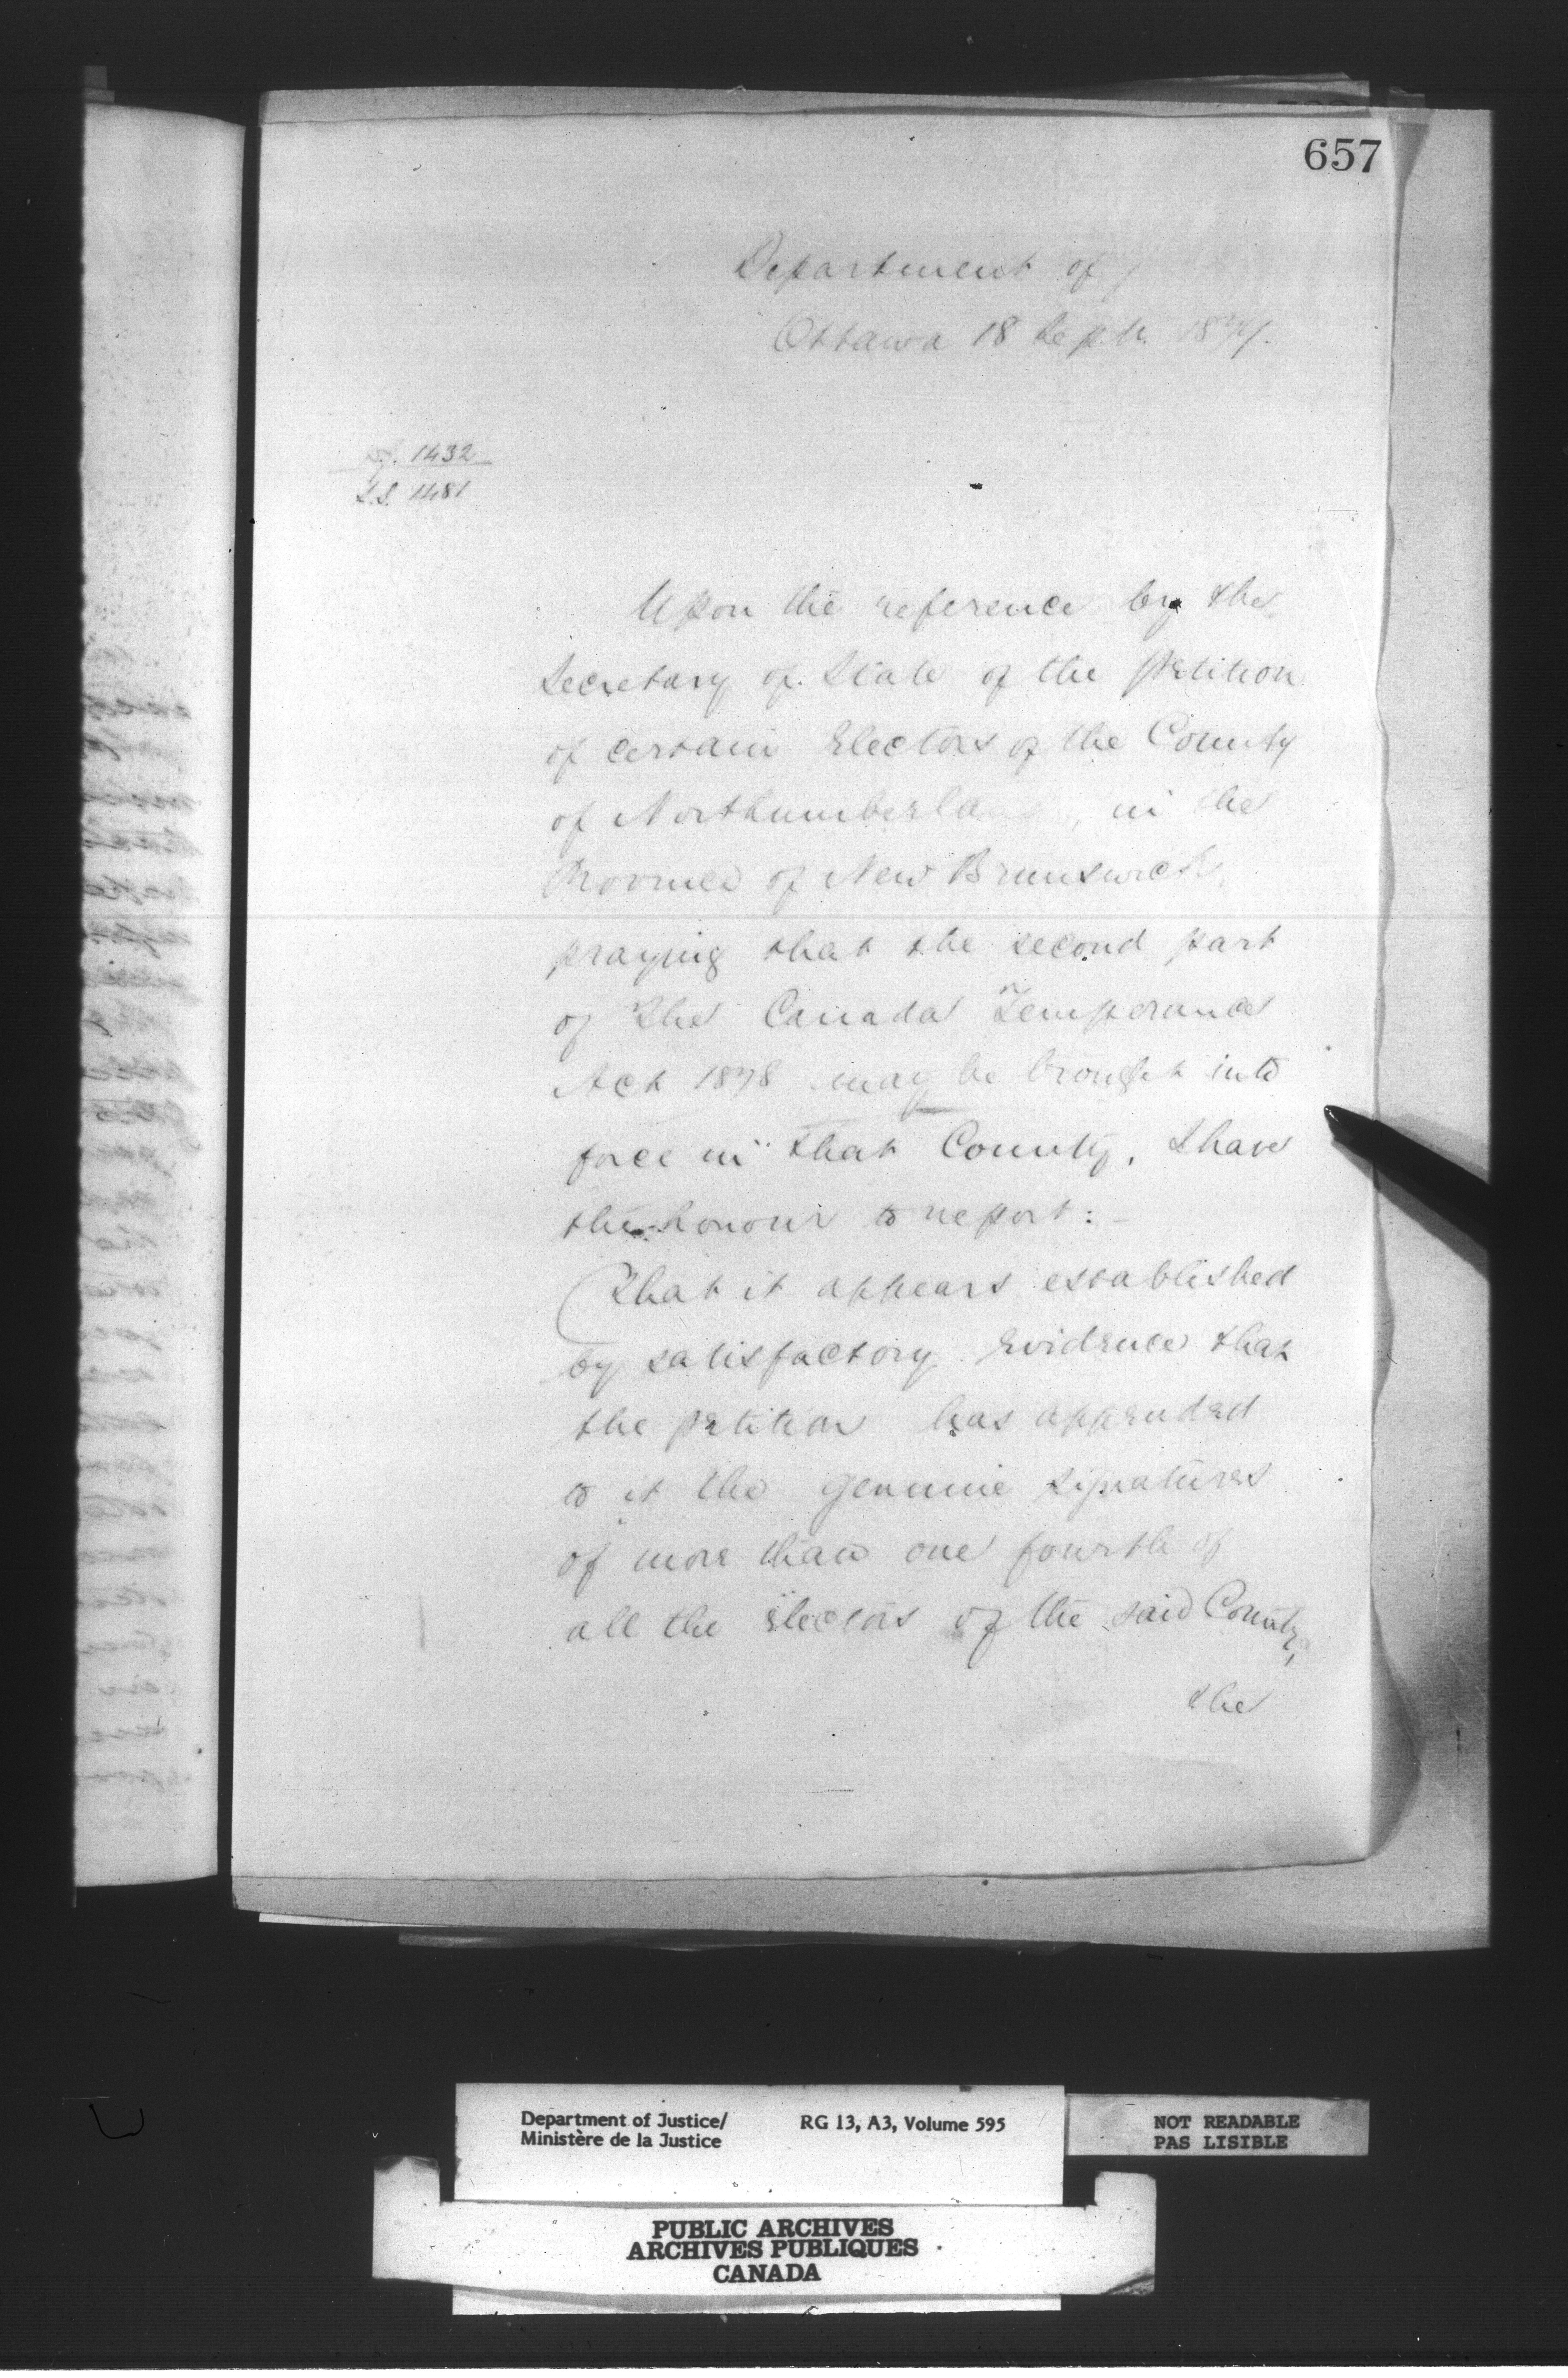 657
Department of
Ottawa 18 Sept.
1432
S.S. 1481
Upon the reference by the
Secretary of State of the petition
of certain Electors of the County
of Northumberland, in the
Province of New Brunswick,
praying that the second part
of the Canada Temperance
Act 1878 may be brought into
force in that County, I have
the honour to report:-
That it appears established
by satisfactory evidence that
the petition has appended
to it the genuine signatures
of more than one fourth of
all the Electors of the said County,
the
Department of Justice/
Ministère de la Justice
RG 13, A3, Volume 595
NOT READABLE
PAS LISIBLE
PUBLIC ARCHIVES
ARCHIVES PUBLIQUES
CANADA